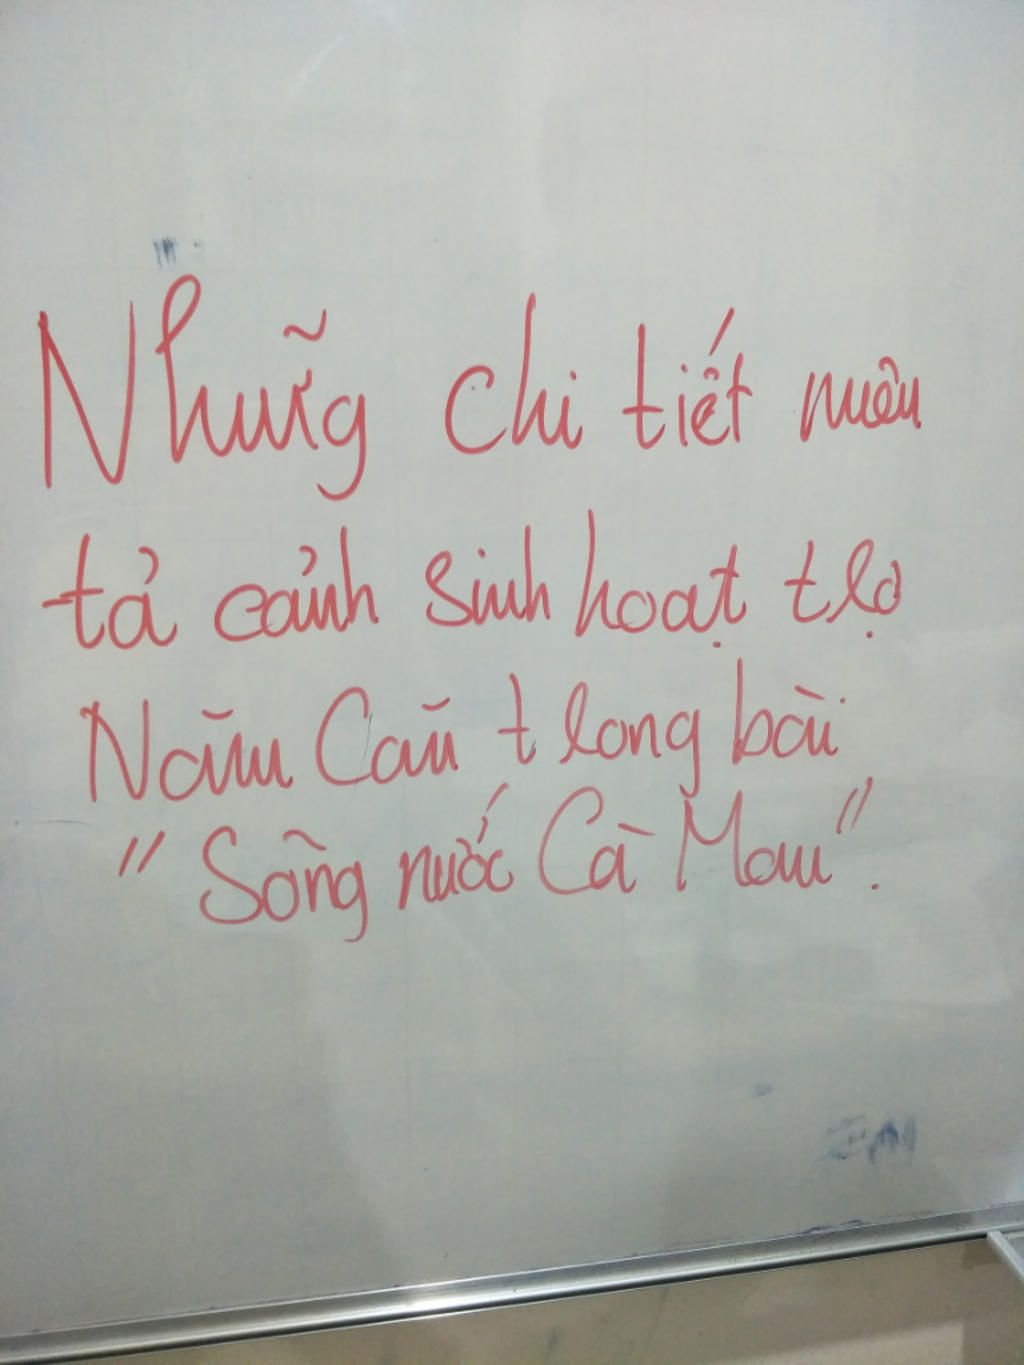 Những chi tiết miêu
tả cảnh sinh hoạt chợ
Năm Căn trong bài
"Sông nước Cà Mau".